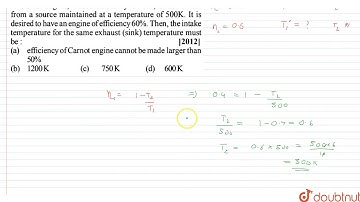 from a source maintained at a temperature of 500K. It is
desired to have an engine of efficiency 60%. Then, the intake
temperature for the same exhaust (sink) temperature must
be : [2012]
(a) efficiency of Carnot engine cannot be made larger than
50%
(b) 1200 K (c) 750 K (d) 600 K
η₂ = 0.6 T₁' = ? T₂
η₁ = 1 - T₂/T₁ ⇒ 0.4 = 1 - T₂/500
T₂/500 = 1 - 0.4 = 0.6
T₂ = 0.6 × 500 =
= 300K
doubtnut